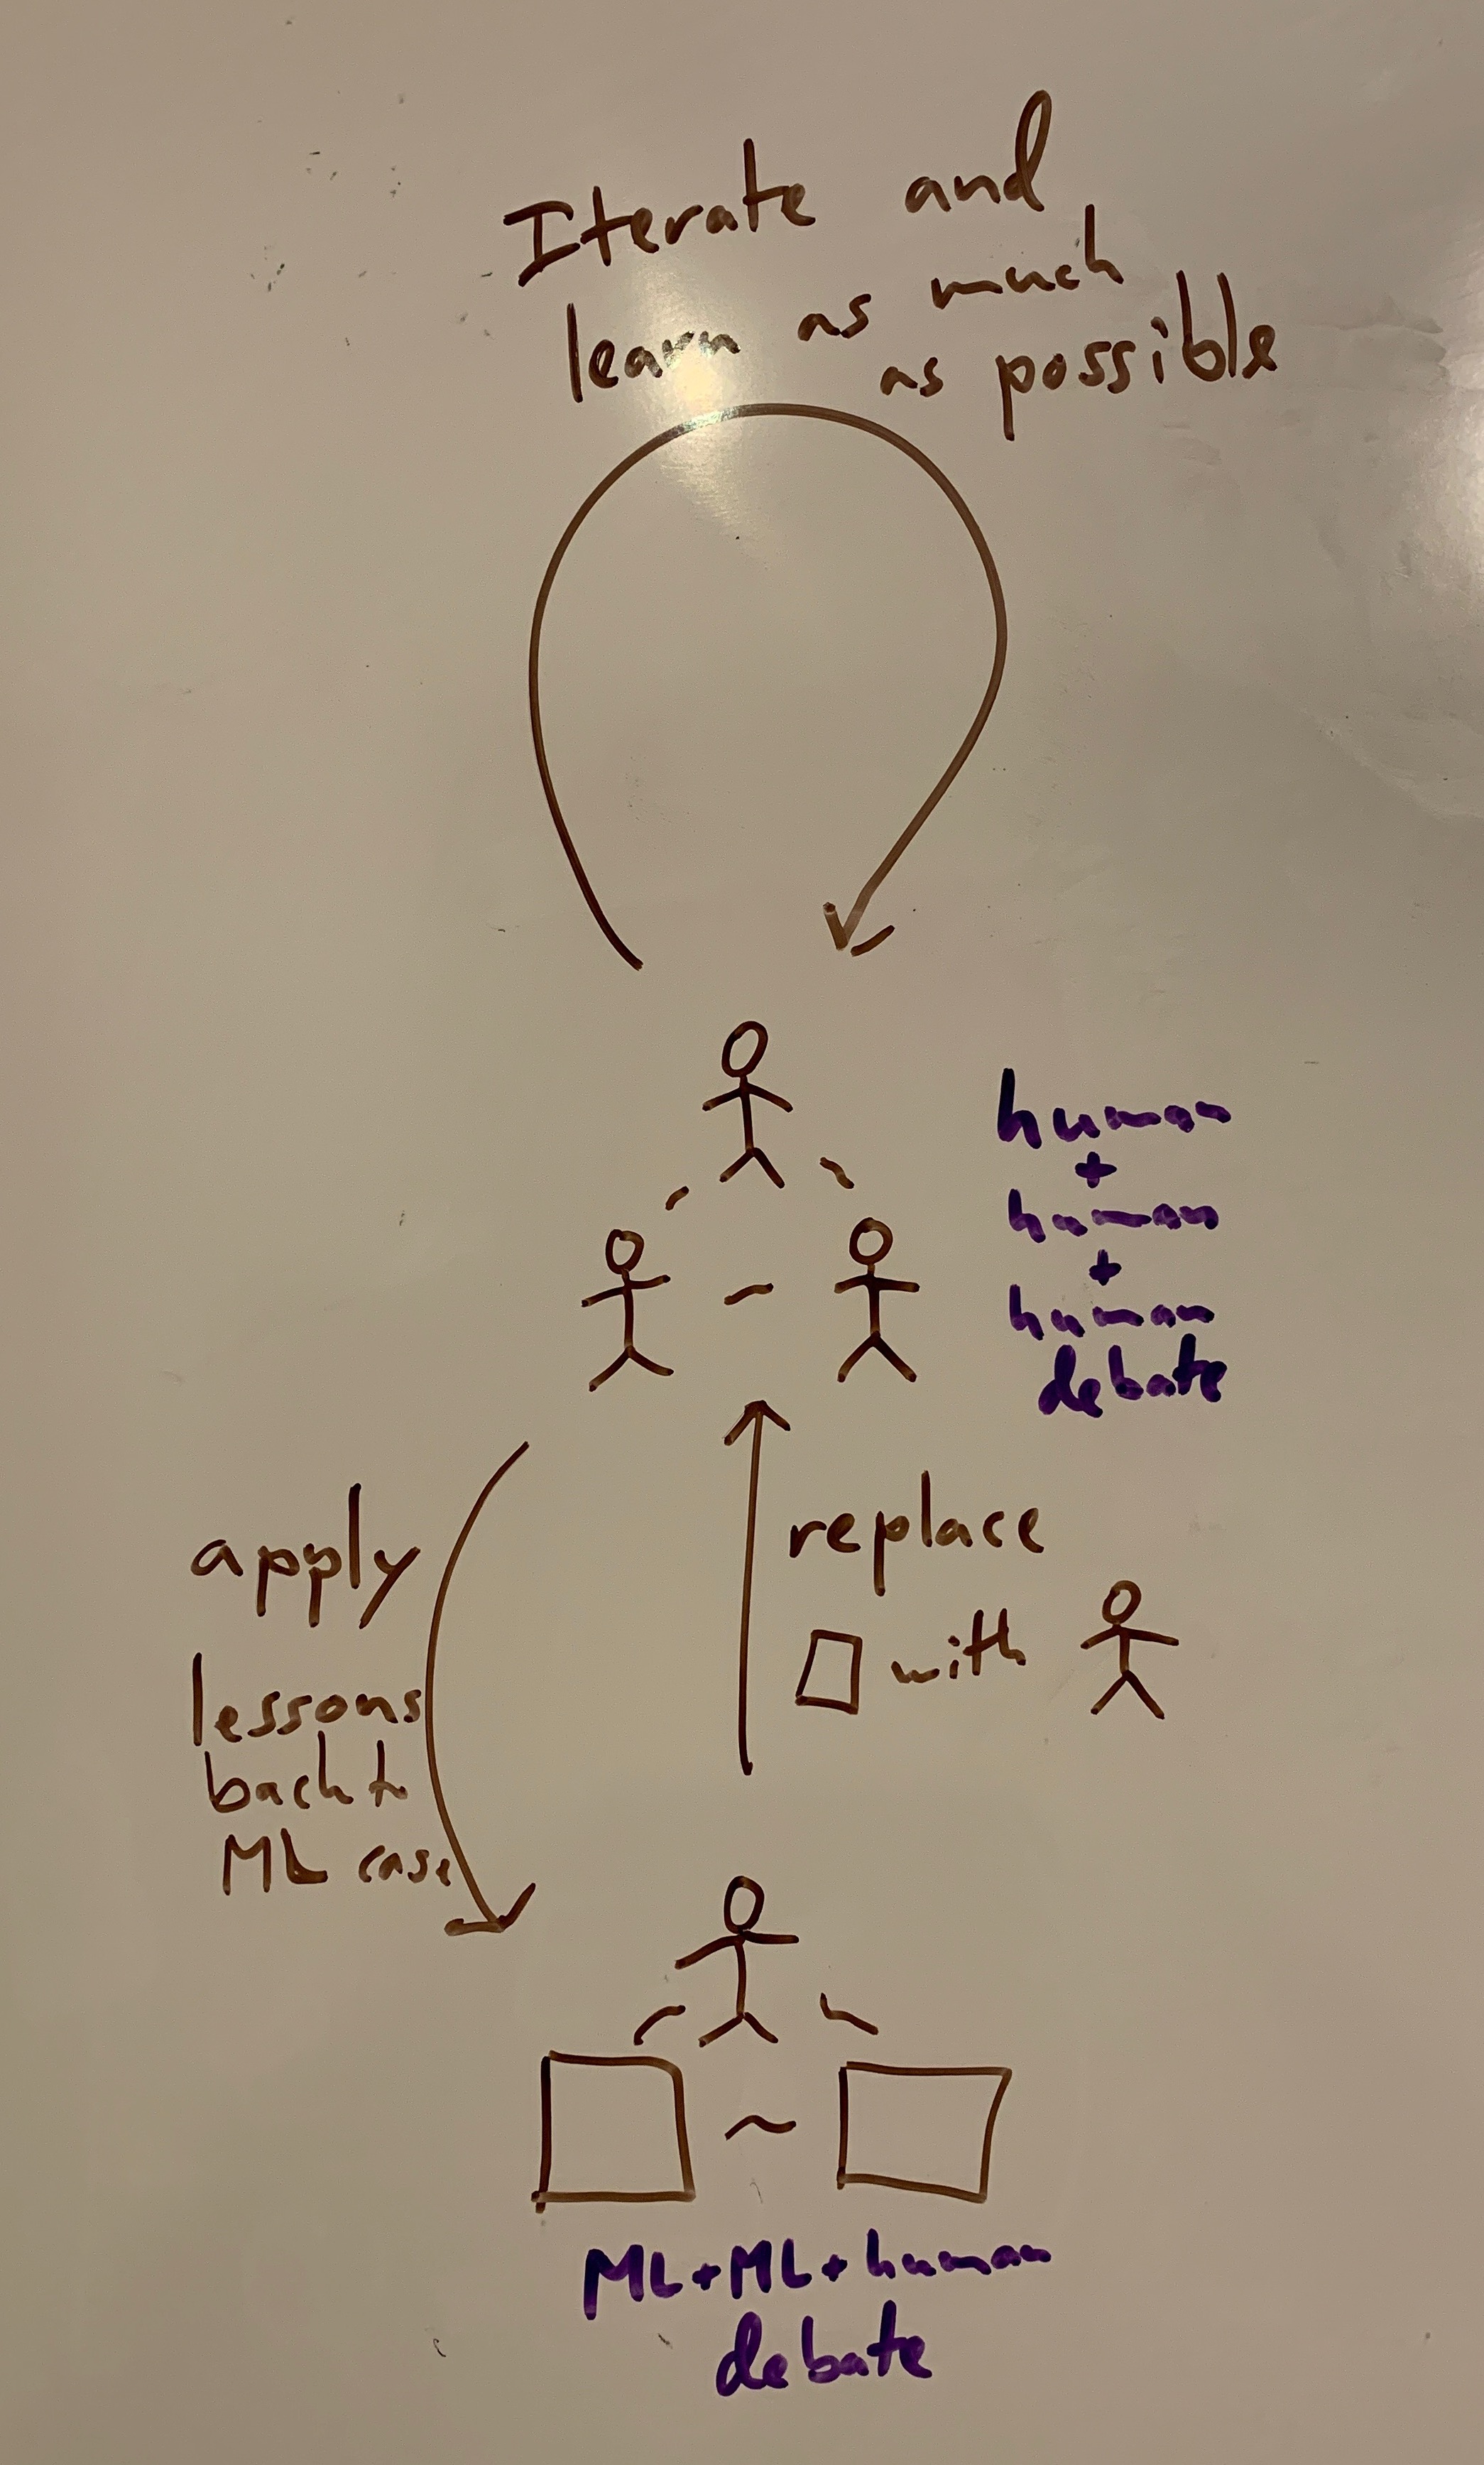 Iterate and
learn as much
as possible
human
+
human
+
human
debate
apply
lessons
back to
ML case
replace
with
ML+ML+human
debate